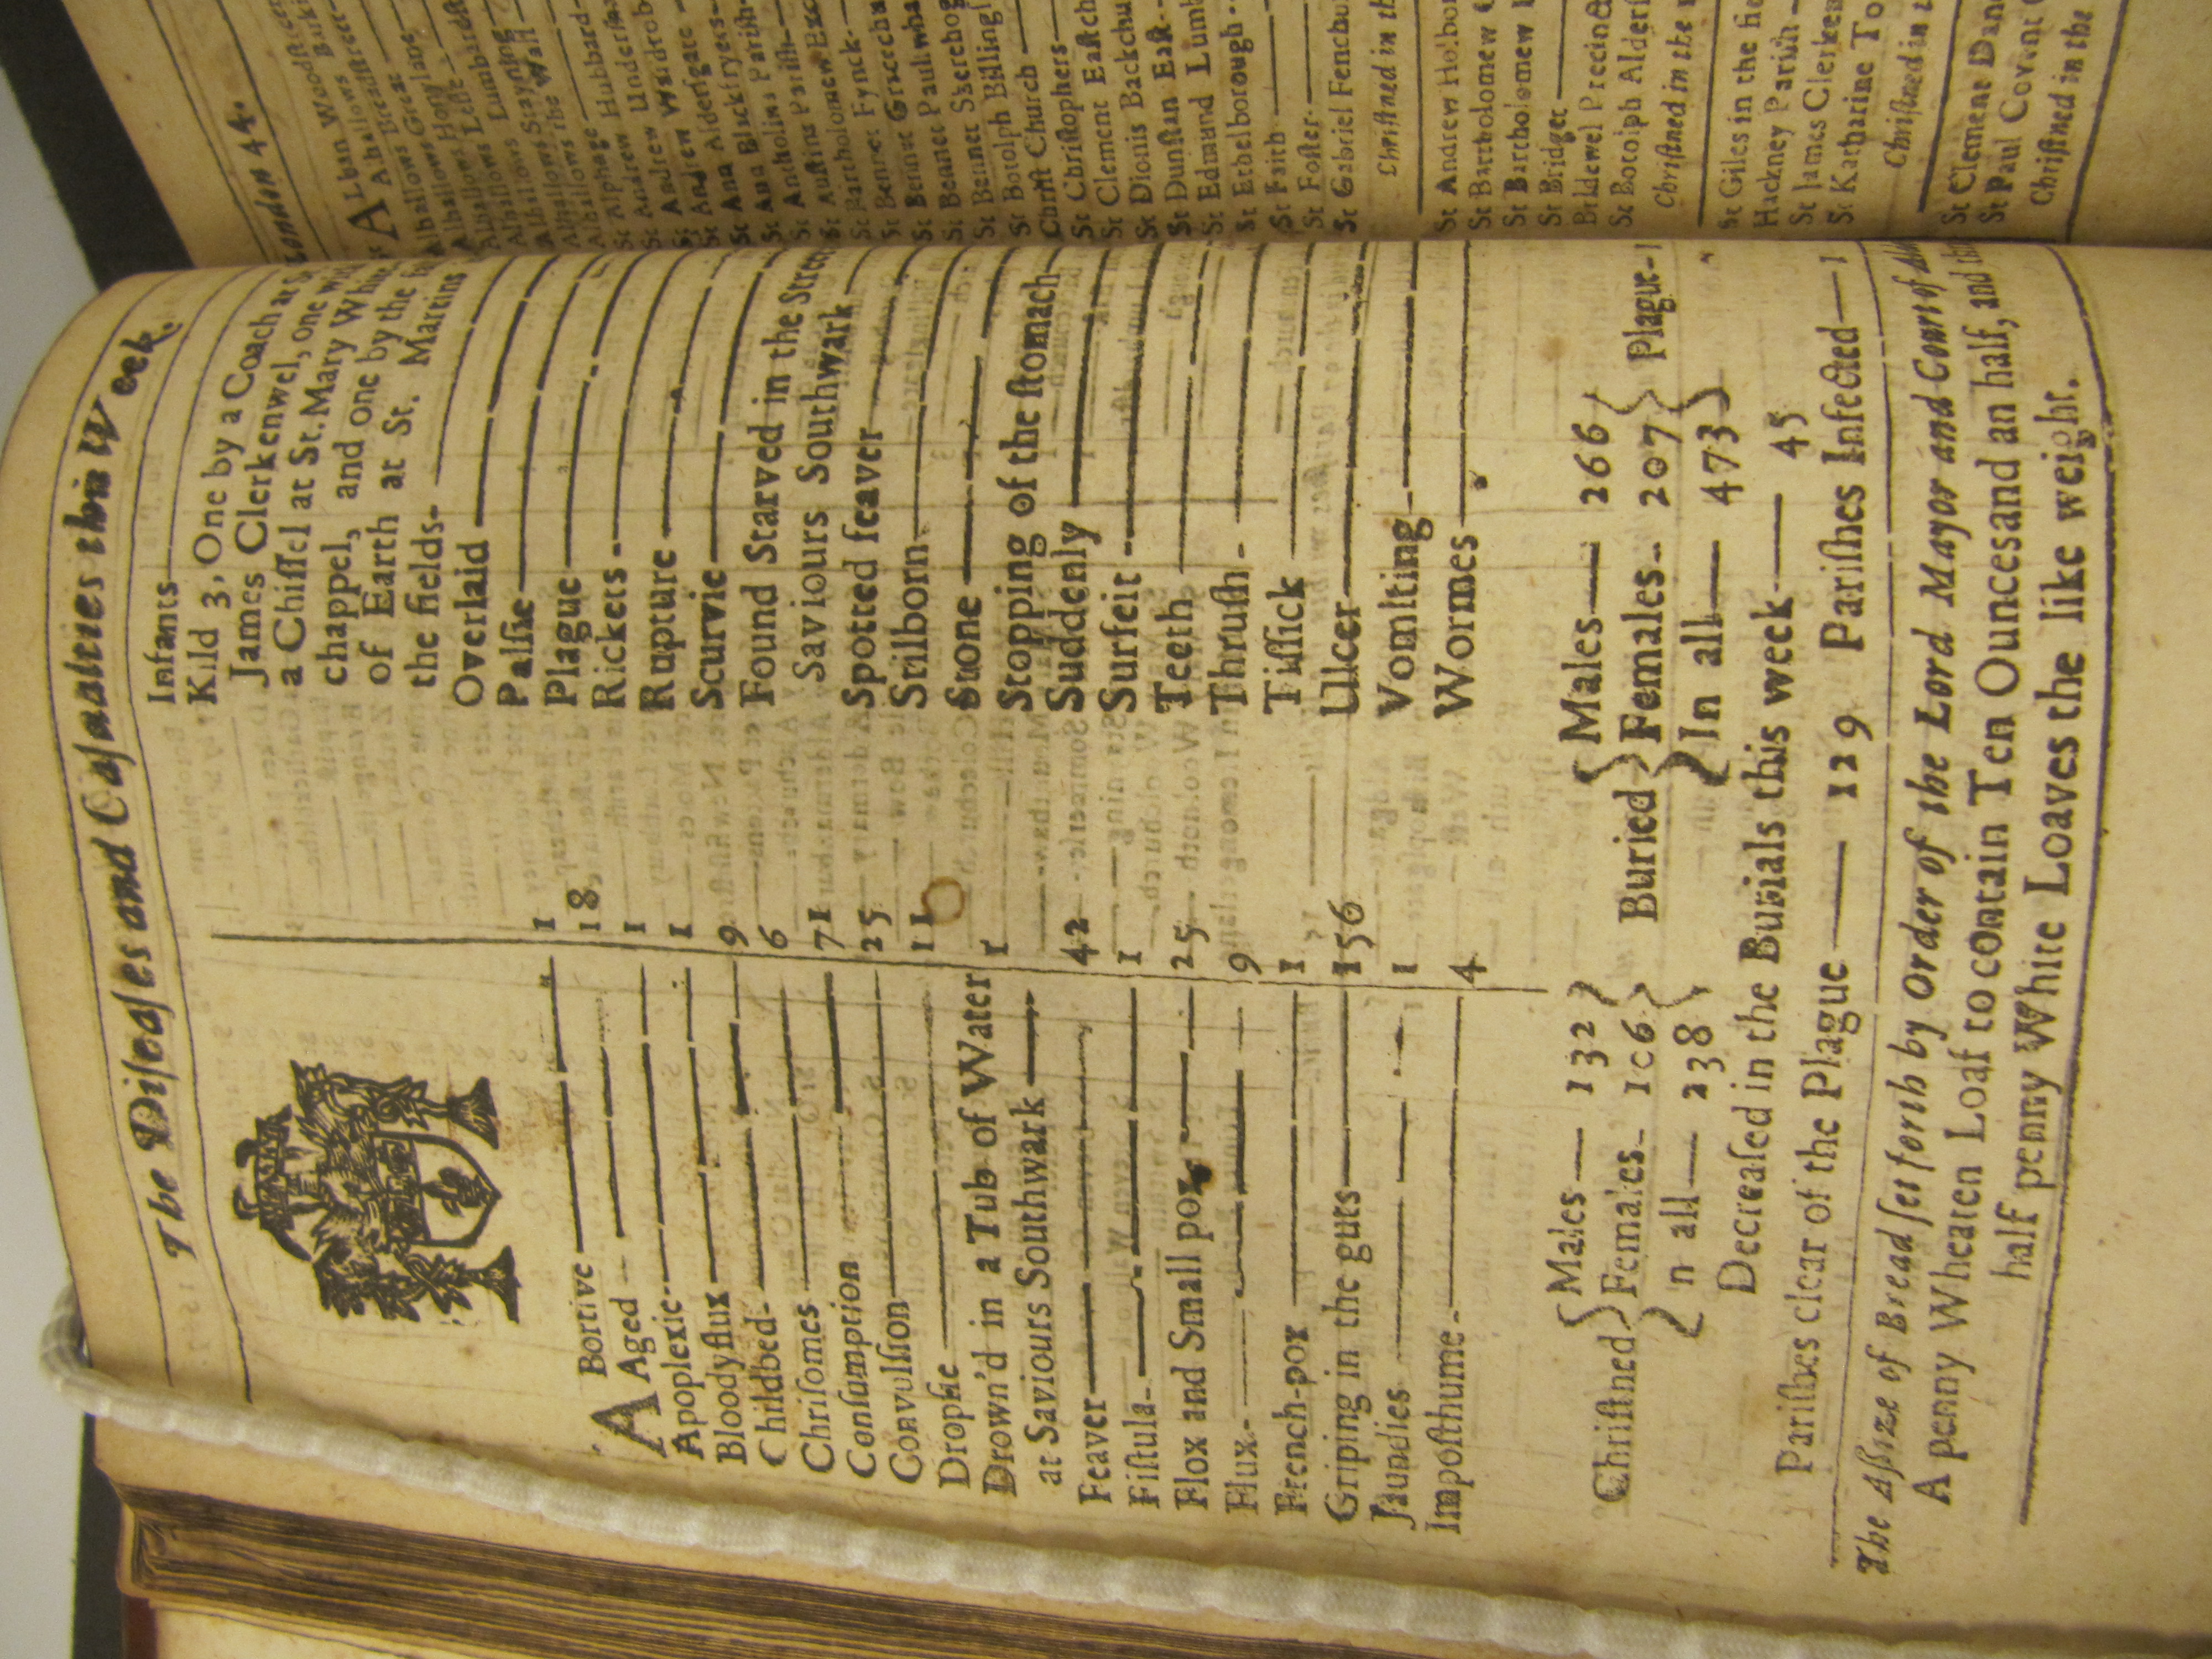 The Diſeaſes and Caſualties this Week.
ABortive — 1
Aged — 18
Apoplexie — 1
Bloodyflux — 1
Childbed — 9
Chriſomes — 6
Conſumption — 71
Convulſion — 25
Dropſie — 11
Drown'd in a Tub of Water
at Saviours Southwark — 1
Feaver — 42
Fiſtula — 1
Flox and Small pox — 25
Flux — 9
French-pox — 1
Griping in the guts — 156
Jaundies — 1
Impoſthume — 4
Infants —
Kild 3, One by a Coach at
James Clerkenwel, one
a Chiſſel at St. Mary
chappel, and one by the
of Earth at St. Martins
the fields-
Overlaid —
Palſie —
Plague —
Rickets —
Rupture —
Scurvie —
Found Starved in the
Saviours Southwark
Spotted feaver —
Stilborn —
Stone —
Stopping of the ſtomach
Suddenly —
Surfeit —
Teeth —
Thruſh —
Tiſſick —
Ulcer —
Vomiting —
Wormes —
Chriſtned { Males — 132 Females — 106 In all — 238 }
Buried { Males — 266 Females — 207 In all — 473 } Plague — 1
Decreaſed in the Burials this week — 45
Pariſhes clear of the Plague — 129 Pariſhes Infected — 1
The Aſſize of Bread ſet forth by Order of the Lord Mayor and Court of
A penny Wheaten Loaf to contain Ten Ounces and an half, and
half penny White Loaves the like weight.
London 44.
ALban Woodſtreet
Alhallows Barki
Alhallows Breadſtreet
Alhallows Great
Alhallows Honylane
Alhallows Leſſe
Alhallows Lumbardſt
Alhallows Stayning
Alhallows the Wall
St Alphage
St Andrew Hubbard
St Andrew Underſhaf
St Andrew Wardrob
St Ann Alderſgate
St Ann Blackfryers
St Antholins Pariſh
St Auſtins Pariſh
St Bartholomew Exc
St Bennet Fynck
St Bennet Gracechu
St Bennet Paulswha
St Bennet Sherehog
St Botolph Billingſ
Chriſt Church
St Chriſtophers
St Clement Eaſtch
St Dionis Backchu
St Dunſtan Eaſt
St Edmund Lumb
St Ethelborough
St Faith
St Foſter
St Gabriel Fenchu
Chriſtned in th
St Andrew Holbor
St Bartholomew
St Bartholomew
St Bridget
Bridewel Precinct
St Botolph Alderſ
Chriſtned in the
St Giles in the fie
Hackney Pariſh
St James Clerken
St Katharine To
Chriſtned in
St Clement Dane
St Paul Covent
Chriſtned in the